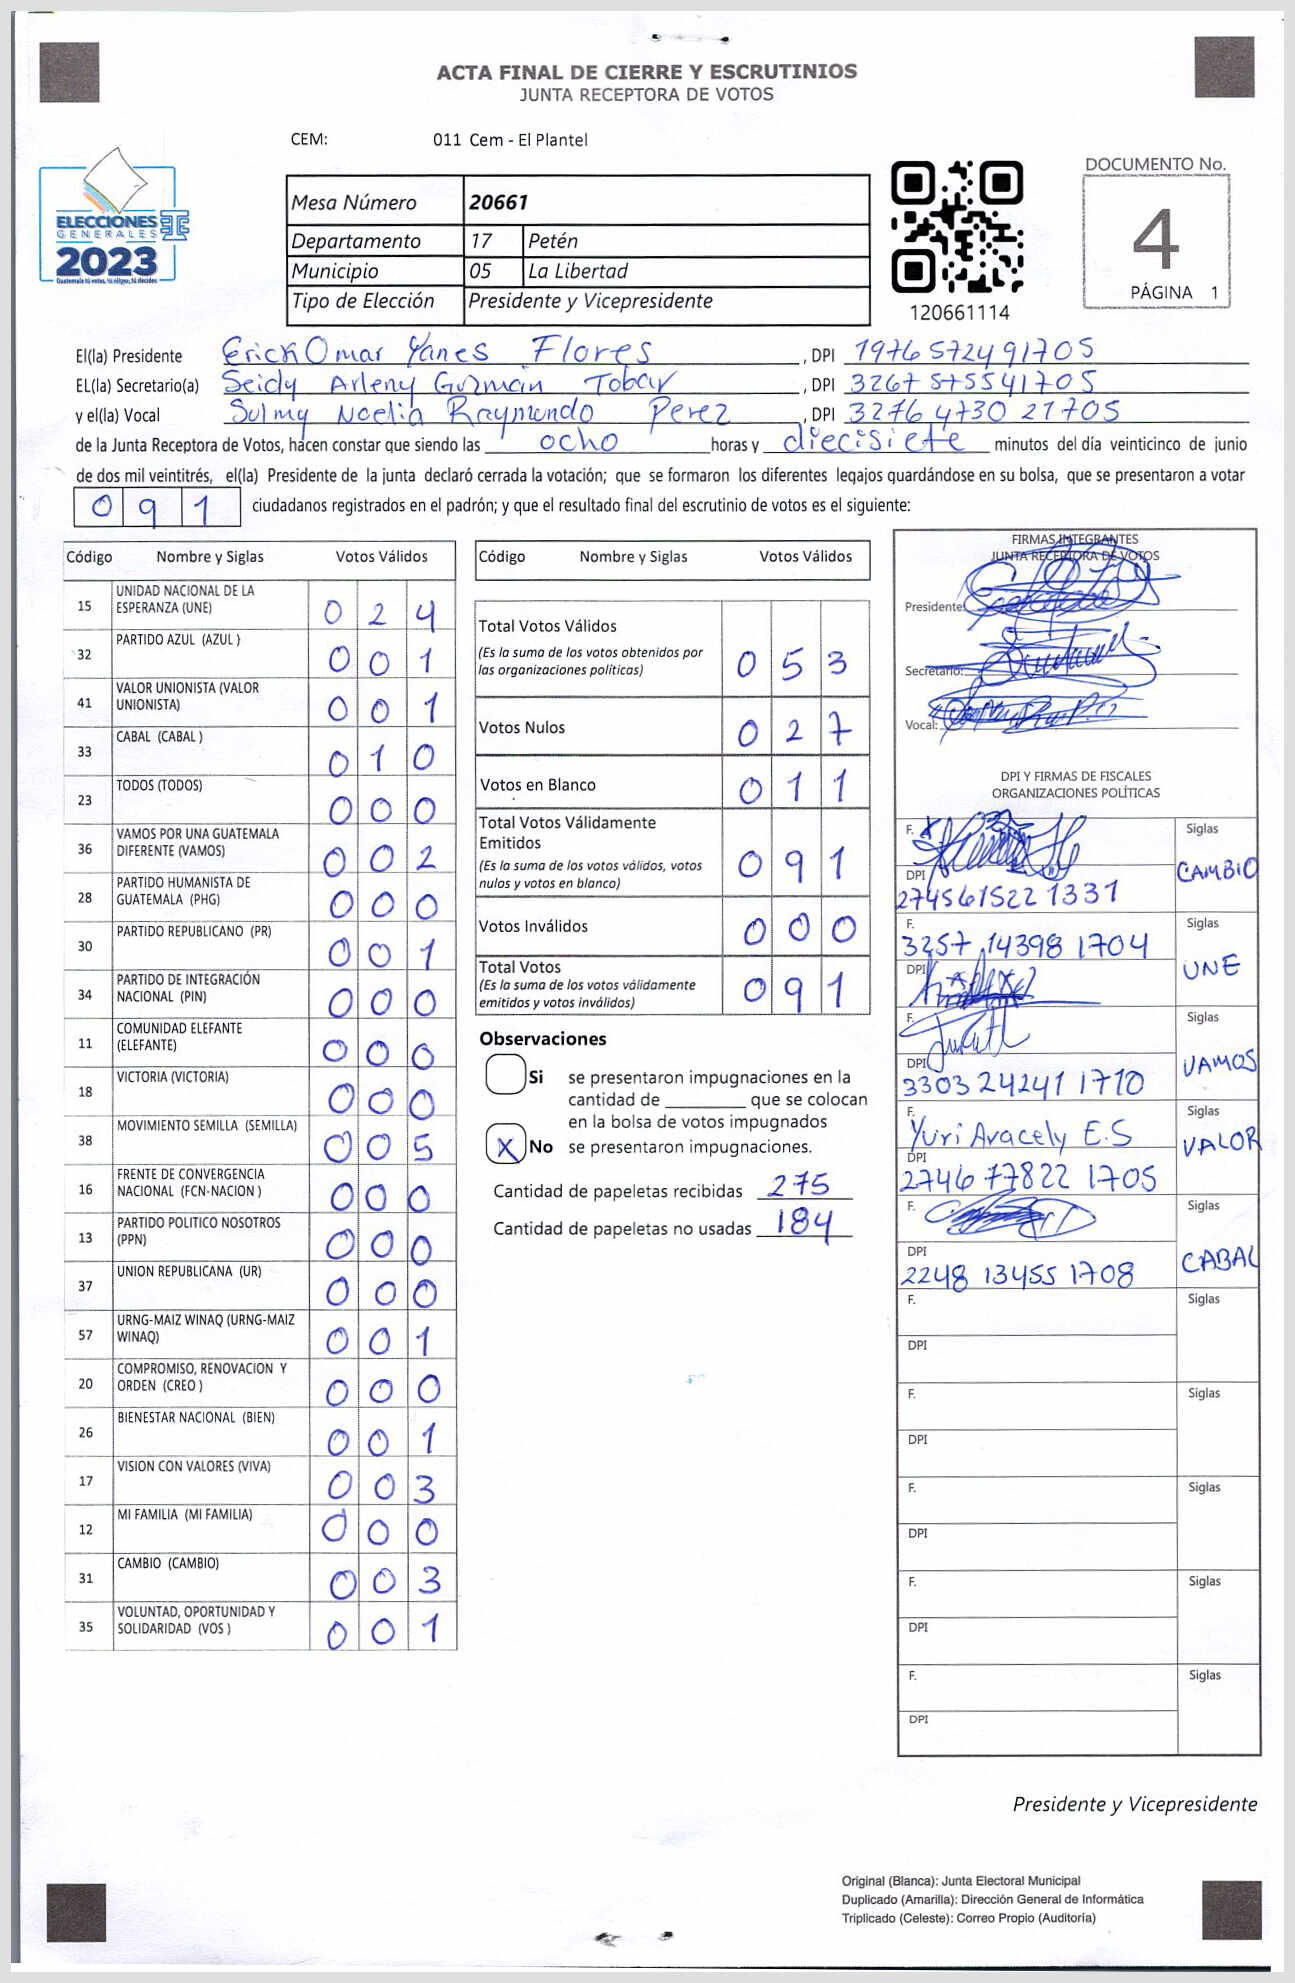 ACTA FINAL DE CIERRE Y ESCRUTINIOS
JUNTA RECEPTORA DE VOTOS
CEM: 011 Cem - El Plantel
ELECCIONES
GENERALES
2023
Guatemala tú votas, tú eliges, tú decides
Mesa Número 20661
Departamento 17 Petén
Municipio 05 La Libertad
Tipo de Elección Presidente y Vicepresidente
120661114
DOCUMENTO No.
4
PÁGINA 1
El(la) Presidente Erick Omar Yanes Flores, DPI 1976572491705
EL(la) Secretario(a) Seidy Arleny Guzmán Tobar, DPI 3267575541705
y el(la) Vocal Sulmy Noelia Raymundo Perez, DPI 3276473021705
de la Junta Receptora de Votos, hacen constar que siendo las ocho horas y diecisiete minutos del día veinticinco de junio
de dos mil veintitrés, el(la) Presidente de la junta declaró cerrada la votación; que se formaron los diferentes legajos guardándose en su bolsa, que se presentaron a votar
091 ciudadanos registrados en el padrón; y que el resultado final del escrutinio de votos es el siguiente:
Código Nombre y Siglas Votos Válidos
15 UNIDAD NACIONAL DE LA ESPERANZA (UNE) 0 2 4
32 PARTIDO AZUL (AZUL ) 0 0 1
41 VALOR UNIONISTA (VALOR UNIONISTA) 0 0 1
33 CABAL (CABAL ) 0 1 0
23 TODOS (TODOS) 0 0 0
36 VAMOS POR UNA GUATEMALA DIFERENTE (VAMOS) 0 0 2
28 PARTIDO HUMANISTA DE GUATEMALA (PHG) 0 0 0
30 PARTIDO REPUBLICANO (PR) 0 0 1
34 PARTIDO DE INTEGRACIÓN NACIONAL (PIN) 0 0 0
11 COMUNIDAD ELEFANTE (ELEFANTE) 0 0 0
18 VICTORIA (VICTORIA) 0 0 0
38 MOVIMIENTO SEMILLA (SEMILLA) 0 0 5
16 FRENTE DE CONVERGENCIA NACIONAL (FCN-NACION ) 0 0 0
13 PARTIDO POLITICO NOSOTROS (PPN) 0 0 0
37 UNION REPUBLICANA (UR) 0 0 0
57 URNG-MAIZ WINAQ (URNG-MAIZ WINAQ) 0 0 1
20 COMPROMISO, RENOVACION Y ORDEN (CREO ) 0 0 0
26 BIENESTAR NACIONAL (BIEN) 0 0 1
17 VISION CON VALORES (VIVA) 0 0 3
12 MI FAMILIA (MI FAMILIA) 0 0 0
31 CAMBIO (CAMBIO) 0 0 3
35 VOLUNTAD, OPORTUNIDAD Y SOLIDARIDAD (VOS ) 0 0 1
Código Nombre y Siglas Votos Válidos
Total Votos Válidos 0 5 3
(Es la suma de los votos obtenidos por
las organizaciones políticas)
Votos Nulos 0 2 7
Votos en Blanco 0 1 1
Total Votos Válidamente
Emitidos 0 9 1
(Es la suma de los votos válidos, votos
nulos y votos en blanco)
Votos Inválidos 0 0 0
Total Votos 0 9 1
(Es la suma de los votos válidamente
emitidos y votos inválidos)
Observaciones
Si se presentaron impugnaciones en la
cantidad de ________ que se colocan
en la bolsa de votos impugnados
X No se presentaron impugnaciones.
Cantidad de papeletas recibidas 275
Cantidad de papeletas no usadas 184
FIRMAS INTEGRANTES
JUNTA RECEPTORA DE VOTOS
Presidente:
Secretario:
Vocal:
DPI Y FIRMAS DE FISCALES
ORGANIZACIONES POLÍTICAS
F. Siglas
DPI CAMBIO
274561522 1331
F. Siglas
3257 14398 1704
DPI UNE
F. Siglas
DPI VAMOS
3303 24241 1710
F. Siglas
Yuri Aracely E.S VALOR
DPI
2746 77822 1705
F. Siglas
DPI CABAL
2248 13455 1708
F. Siglas
DPI
F. Siglas
DPI
F. Siglas
DPI
F. Siglas
DPI
F. Siglas
DPI
Presidente y Vicepresidente
Original (Blanca): Junta Electoral Municipal
Duplicado (Amarilla): Dirección General de Informática
Triplicado (Celeste): Correo Propio (Auditoría)